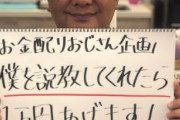 お金配りおじさん企画!
僕を説教してくれたら
1万円あげます!